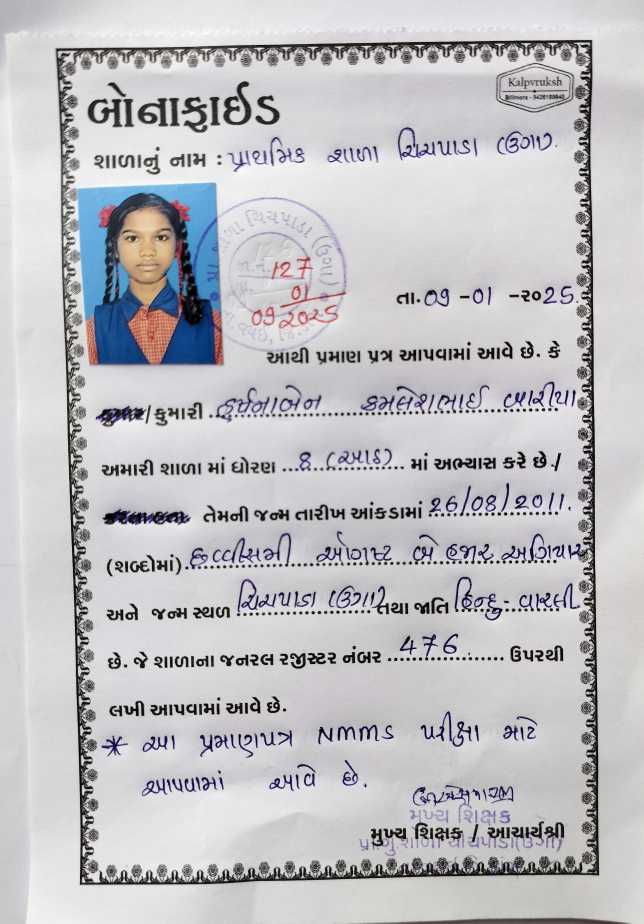 Kalpvruksh
બોનાફાઈડ
શાળાનું નામ : પ્રાથમિક શાળા ચિચપાડા (ઉગા).
127
01
09 2025
તા. 09 -01 -૨૦25.
આથી પ્રમાણ પત્ર આપવામાં આવે છે. કે
કુમાર/કુમારી કમલેશભાઈ વારીયા
અમારી શાળા માં ધોરણ ... 8 (આઠ) ... માં અભ્યાસ કરે છે./
તેમની જન્મ તારીખ આંકડામાં 26/08/2011.
(શબ્દોમાં). છવ્વીસમી ઓગષ્ટ બે હજાર અગિયાર
અને જન્મ સ્થળ ચિચપાડા (ઉગા) તથા જાતિ હિન્દુ - વારલી
છે. જે શાળાના જનરલ રજીસ્ટર નંબર .... 476 .... ઉપરથી
લખી આપવામાં આવે છે.
* આ પ્રમાણપત્ર NMMS પરીક્ષા માટે
આપવામાં આવે છે.
મુખ્ય શિક્ષક
મુખ્ય શિક્ષક / આચાર્યશ્રી